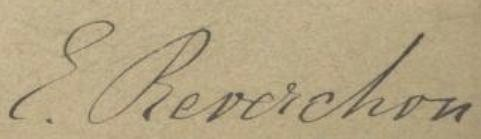 E. Reverchon